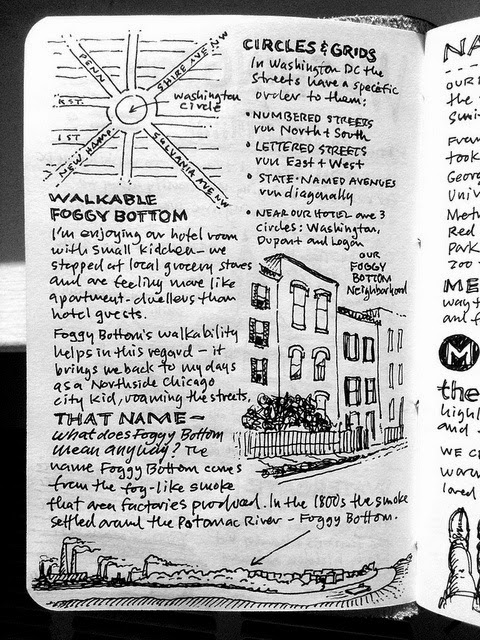 PENN
SHIRE AVE NW
K ST.
I ST.
NEW HAMP
SYLVANIA AVE NW
Washington
Circle
CIRCLES & GRIDS
In Washington DC the
streets have a specific
order to them:
• NUMBERED STREETS
run North & South
• LETTERED STREETS
run East + West
• STATE-NAMED AVENUES
run diagonally
• NEAR OUR HOTEL are 3
circles: Washington,
Dupont and Logan
OUR
FOGGY
BOTTOM
Neighborhood
WALKABLE
FOGGY BOTTOM
I'm enjoying our hotel room
with small kitchen — we
stopped at local grocery stores
and are feeling more like
apartment-dwellers than
hotel guests.
Foggy Bottom's walkability
helps in this regard — it
brings me back to my days
as a Northside Chicago
city kid, roaming the streets.
THAT NAME —
what does Foggy Bottom
mean anyway? The
name Foggy Bottom comes
from the fog-like smoke
that area factories produced. In the 1800s the smoke
settled around the Potomac River — Foggy Bottom.
NA
OUR
the
Sum
From
took
Geor
Univ
Metr
Red
Park
zoo
ME
way t
and f
M
the
highl
and
WE C
warm
loved